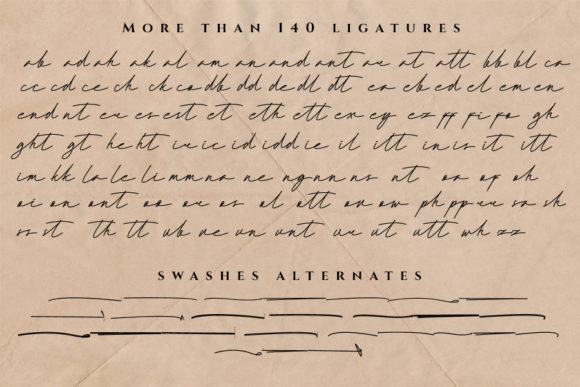 MORE THAN 140 LIGATURES
ab ad ah ak al am an and ant ar at att bb bl ca
cc cd ce ch ck co db dd de dl dt ea eb ed el em en
end nt er es est et eth ett ex ey ez ff fi fo gh
ght gt he ht ir ic id idd ie il itt in is it itt
im kk la le li mm na ne ng nn ns nt oa of oh
oi on ont oo or os ol ott ov ow ph pp rr sa sh
ss st th tt ub ve un unt ur ut utt wh zz
SWASHES ALTERNATES